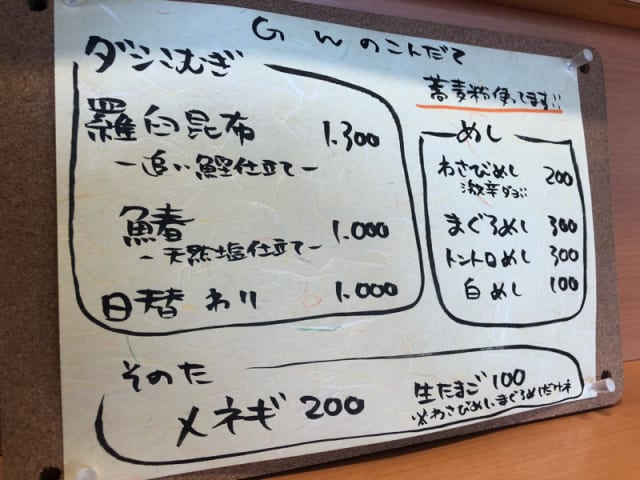 Gんのこんだて
ダシこむぎ
蕎麦粉使ってます!!
羅臼昆布 1.300
ー追い鰹仕立てー
鰆 1.000
ー天然塩仕立てー
日替わり 1.000
めし
わさびめし 200
激辛ダョ!!
まぐろめし 300
トントロめし 300
白めし 100
そのた
メネギ 200
生たまご 100
※わさびめし、まぐろめしだけネ